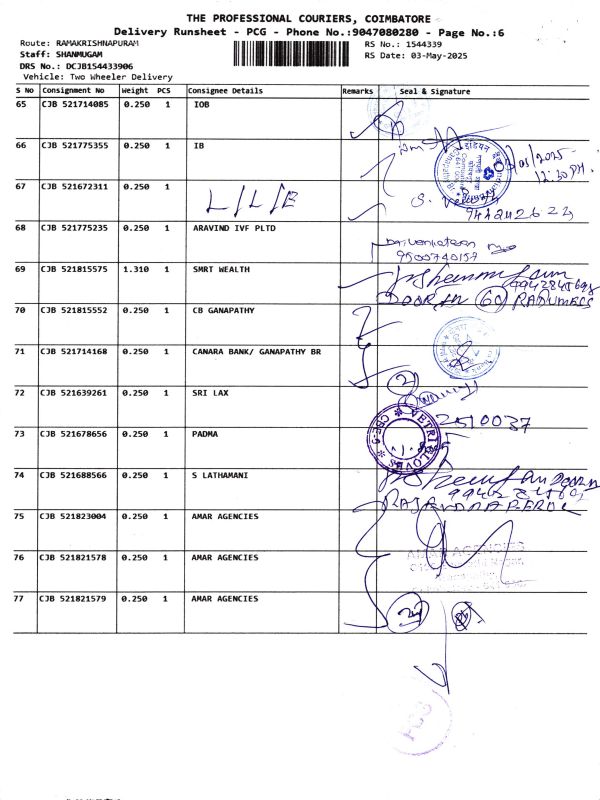 THE PROFESSIONAL COURIERS, COIMBATORE
Delivery Runsheet - PCG - Phone No.:9047080280 - Page No.:6
Route: RAMAKRISHNAPURAM
RS No.: 1544339
Staff: SHANMUGAM
RS Date: 03-May-2025
DRS No.: DCJB154433906
Vehicle: Two Wheeler Delivery
S No Consignment No Weight PCS Consignee Details Remarks Seal & Signature
65 CJB 521714085 0.250 1 IOB
66 CJB 521775355 0.250 1 IB
/2025
12:30 PM
67 CJB 521672311 0.250 1 L/L/B
68 CJB 521775235 0.250 1 ARAVIND IVF PLTD
9500740157
69 CJB 521815575 1.310 1 SMRT WEALTH
DOOR IN 60
70 CJB 521815552 0.250 1 CB GANAPATHY
71 CJB 521714168 0.250 1 CANARA BANK/ GANAPATHY BR
72 CJB 521639261 0.250 1 SRI LAX
2510037
73 CJB 521678656 0.250 1 PADMA
VETRI GLOVES CBE-6
74 CJB 521688566 0.250 1 S LATHAMANI
75 CJB 521823004 0.250 1 AMAR AGENCIES
AMAR AGENCIES
76 CJB 521821578 0.250 1 AMAR AGENCIES
77 CJB 521821579 0.250 1 AMAR AGENCIES
PCG